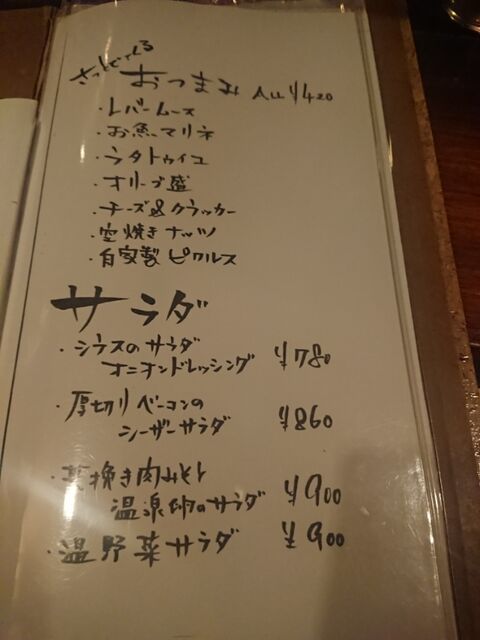 さっとでてくる
おつまみ ALL ¥420
・レバームース
・お魚マリネ
・ラタトゥイユ
・オリーブ盛
・チーズ&クラッカー
・空焼きナッツ
・自家製ピクルス
サラダ
・シラスのサラダ
オニオンドレッシング ¥780
・厚切りベーコンの
シーザーサラダ ¥860
・荒挽き肉みそと
温泉卵のサラダ ¥900
・温野菜サラダ ¥900